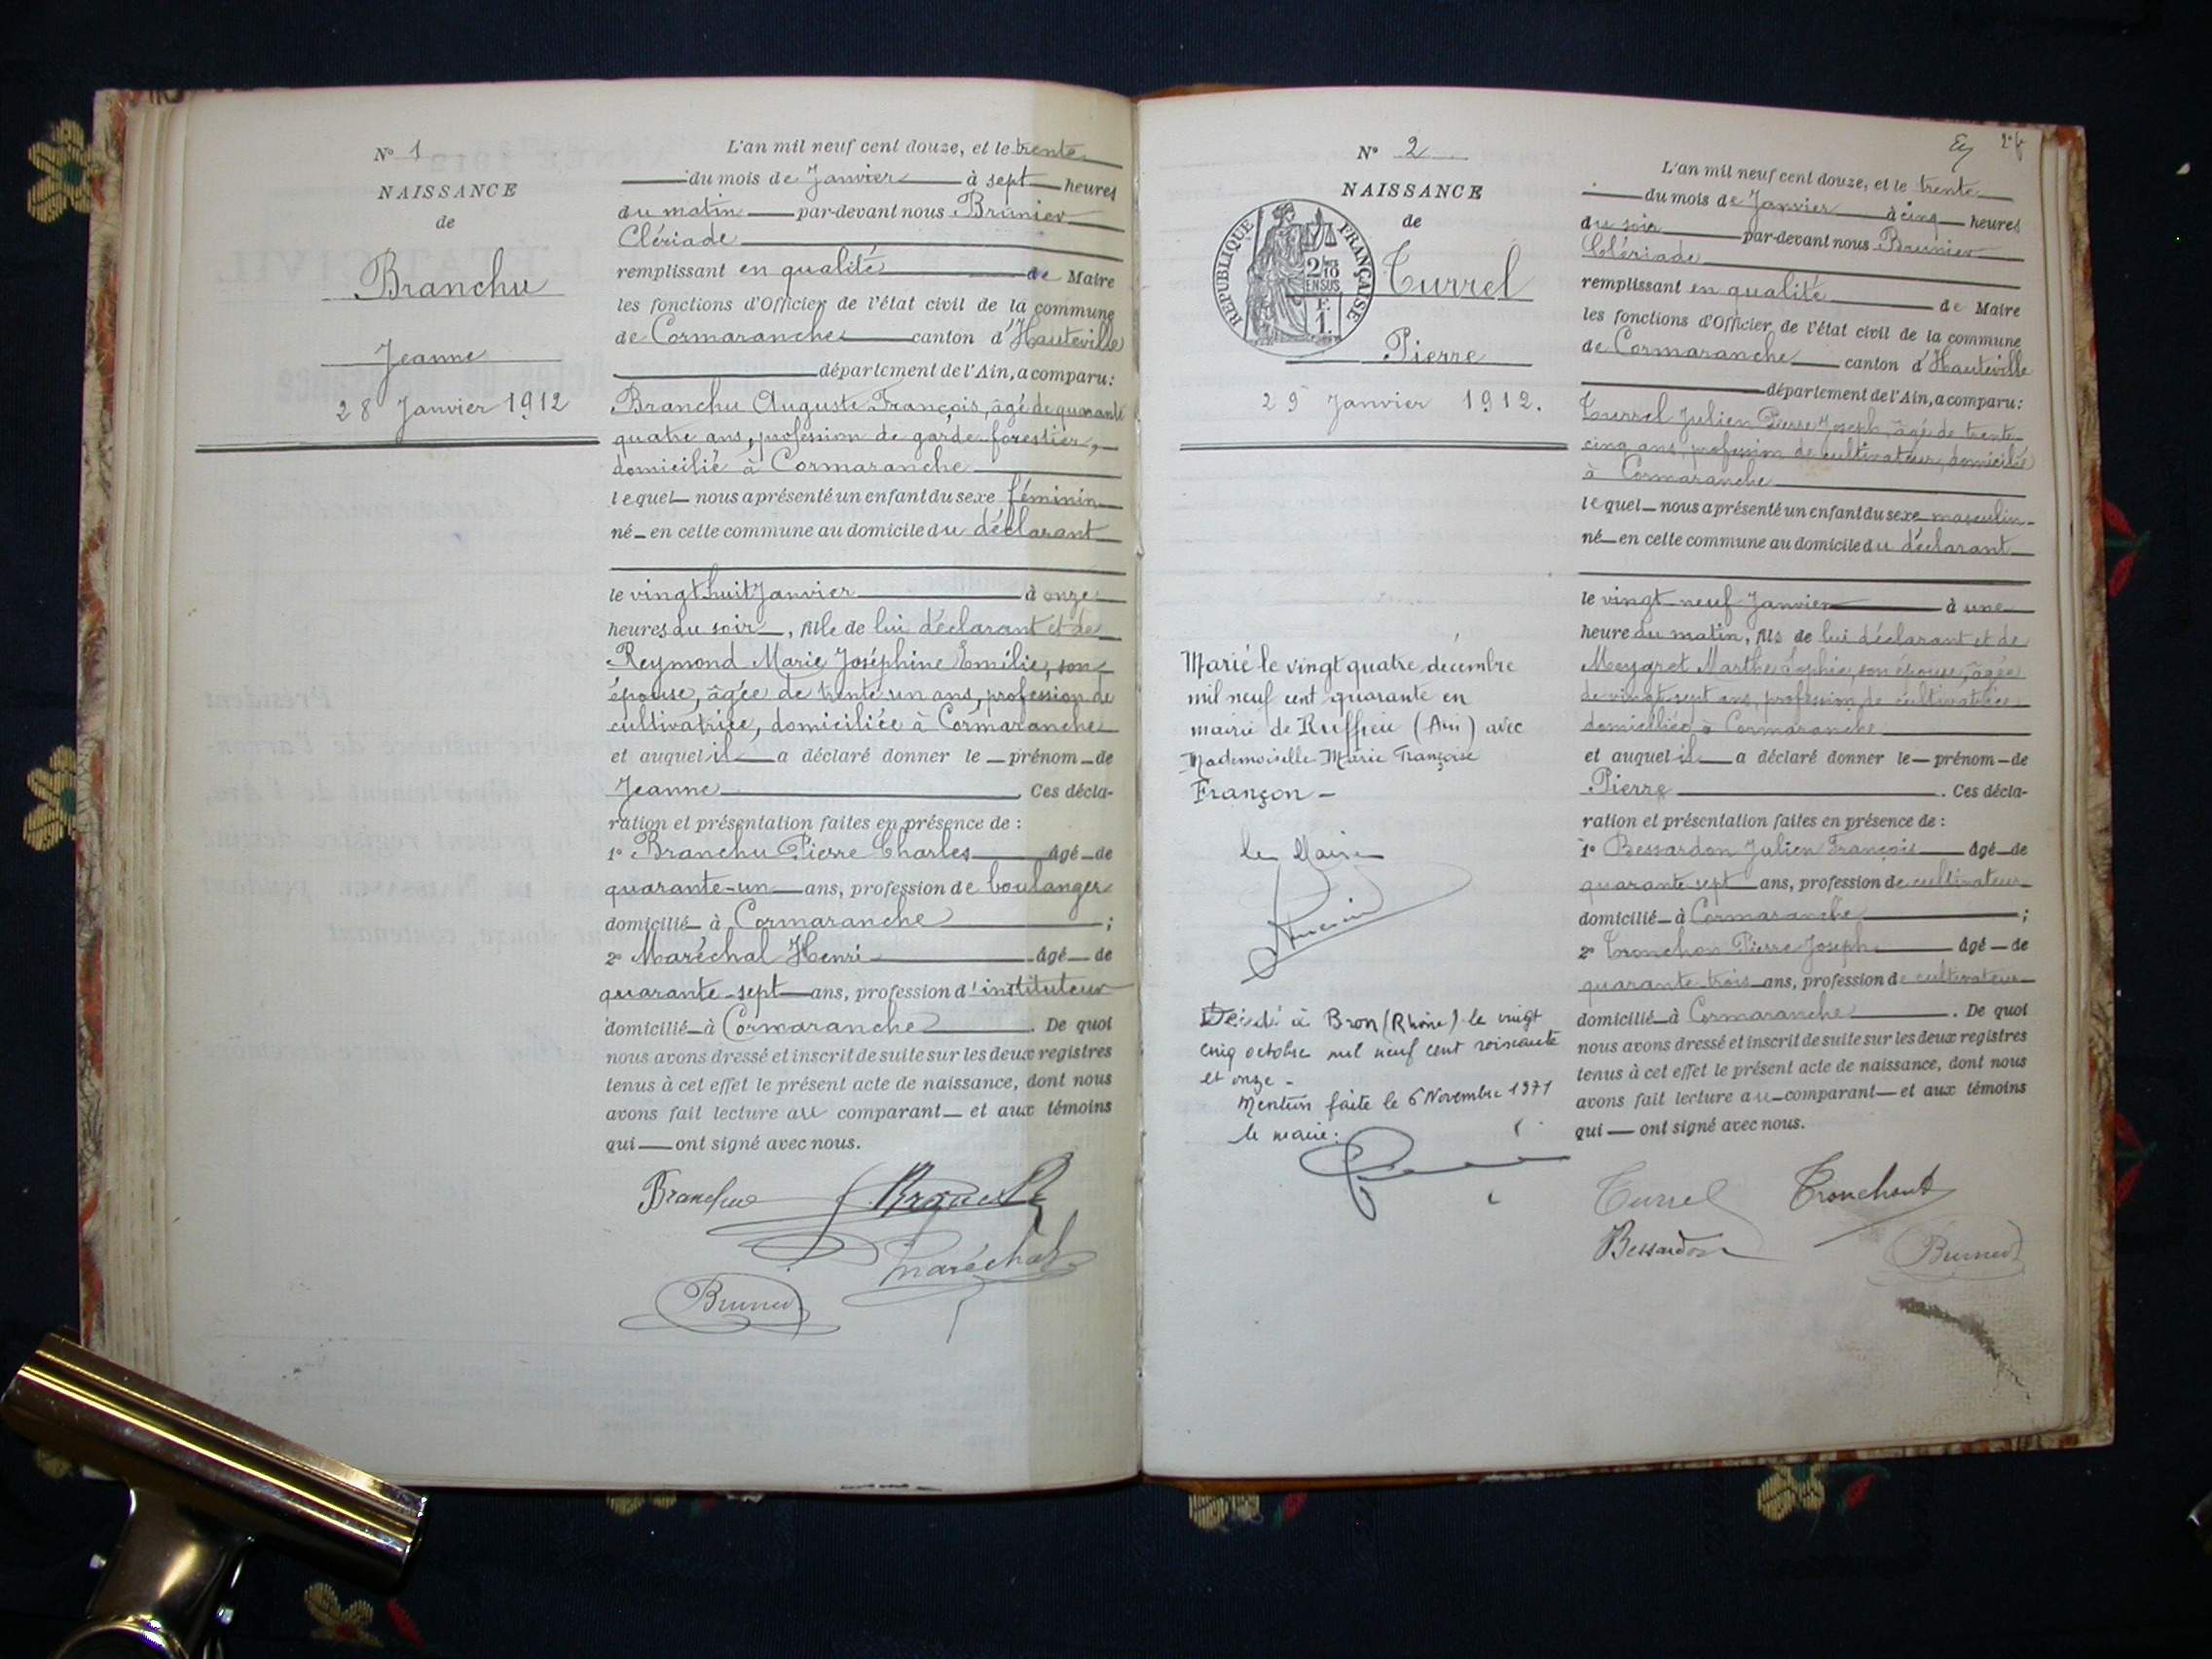 N° 1
NAISSANCE
de
Branchu
Jeanne
28 Janvier 1912
L'an mil neuf cent douze, et le trente
du mois de Janvier à sept heures
du matin par-devant nous Brunier
Clériade
remplissant en qualité de Maire
les fonctions d'Officier de l'état civil de la commune
de Cormaranche canton d'Hauteville
département de l'Ain, a comparu:
Branchu Auguste François, âgé de quarante
quatre ans, profession de garde forestier,
domicilié à Cormaranche
lequel nous a présenté un enfant du sexe féminin
né en cette commune au domicile du déclarant
le vingt huit Janvier à onze
heures du soir, fille de lui déclarant et de
Reymond Marie Joséphine Emélie, son
épouse, âgée de trente un ans, profession de
cultivatrice, domiciliée à Cormaranche
et auquel il a déclaré donner le prénom de
Jeanne. Ces décla-
ration et présentation faites en présence de :
1° Branchu Pierre Charles âgé de
quarante-un ans, profession de boulanger
domicilié à Cormaranche ;
2° Maréchal Henri âgé de
quarante-sept ans, profession d'instituteur
domicilié à Cormaranche. De quoi
nous avons dressé et inscrit de suite sur les deux registres
tenus à cet effet le présent acte de naissance, dont nous
avons fait lecture au comparant et aux témoins
qui ont signé avec nous.
Branchu
Maréchal
Brunier
2e f
N° 2
NAISSANCE
de
RÉPUBLIQUE FRANÇAISE
2/10
EN SUS
F.
1.
Turrel
Pierre
29 Janvier 1912.
Marié le vingt quatre décembre
mil neuf cent quarante en
mairie de Ruffieu (Ain) avec
Mademoiselle Marie Françoise
Françon -
le Maire
Décédé à Bron (Rhône) le vingt
cinq octobre mil neuf cent soixante
et onze -
Mention faite le 6 Novembre 1971
le maire:
L'an mil neuf cent douze, et le trente
du mois de Janvier à cinq heures
du soir par-devant nous Brunier
Clériade
remplissant en qualité de Maire
les fonctions d'Officier de l'état civil de la commune
de Cormaranche canton d'Hauteville
département de l'Ain, a comparu:
Turrel Julien Pierre Joseph, âgé de trente
cinq ans, profession de cultivateur, domicilié
à Cormaranche
lequel nous a présenté un enfant du sexe masculin
né en cette commune au domicile du déclarant
le vingt-neuf Janvier à une
heure du matin, fils de lui déclarant et de
Meygret Marthe Sophie, son épouse, âgée
de vingt sept ans, profession de cultivatrice
domiciliée à Cormaranche
et auquel il a déclaré donner le prénom de
Pierre. Ces décla-
ration et présentation faites en présence de :
1° Bessardon Julien François âgé de
quarante sept ans, profession de cultivateur
domicilié à Cormaranche ;
2° Tronchon Pierre Joseph âgé de
quarante trois ans, profession de cultivateur
domicilié à Cormaranche. De quoi
nous avons dressé et inscrit de suite sur les deux registres
tenus à cet effet le présent acte de naissance, dont nous
avons fait lecture au comparant et aux témoins
qui ont signé avec nous.
Turrel Tronchont
Bessardon
Brunier